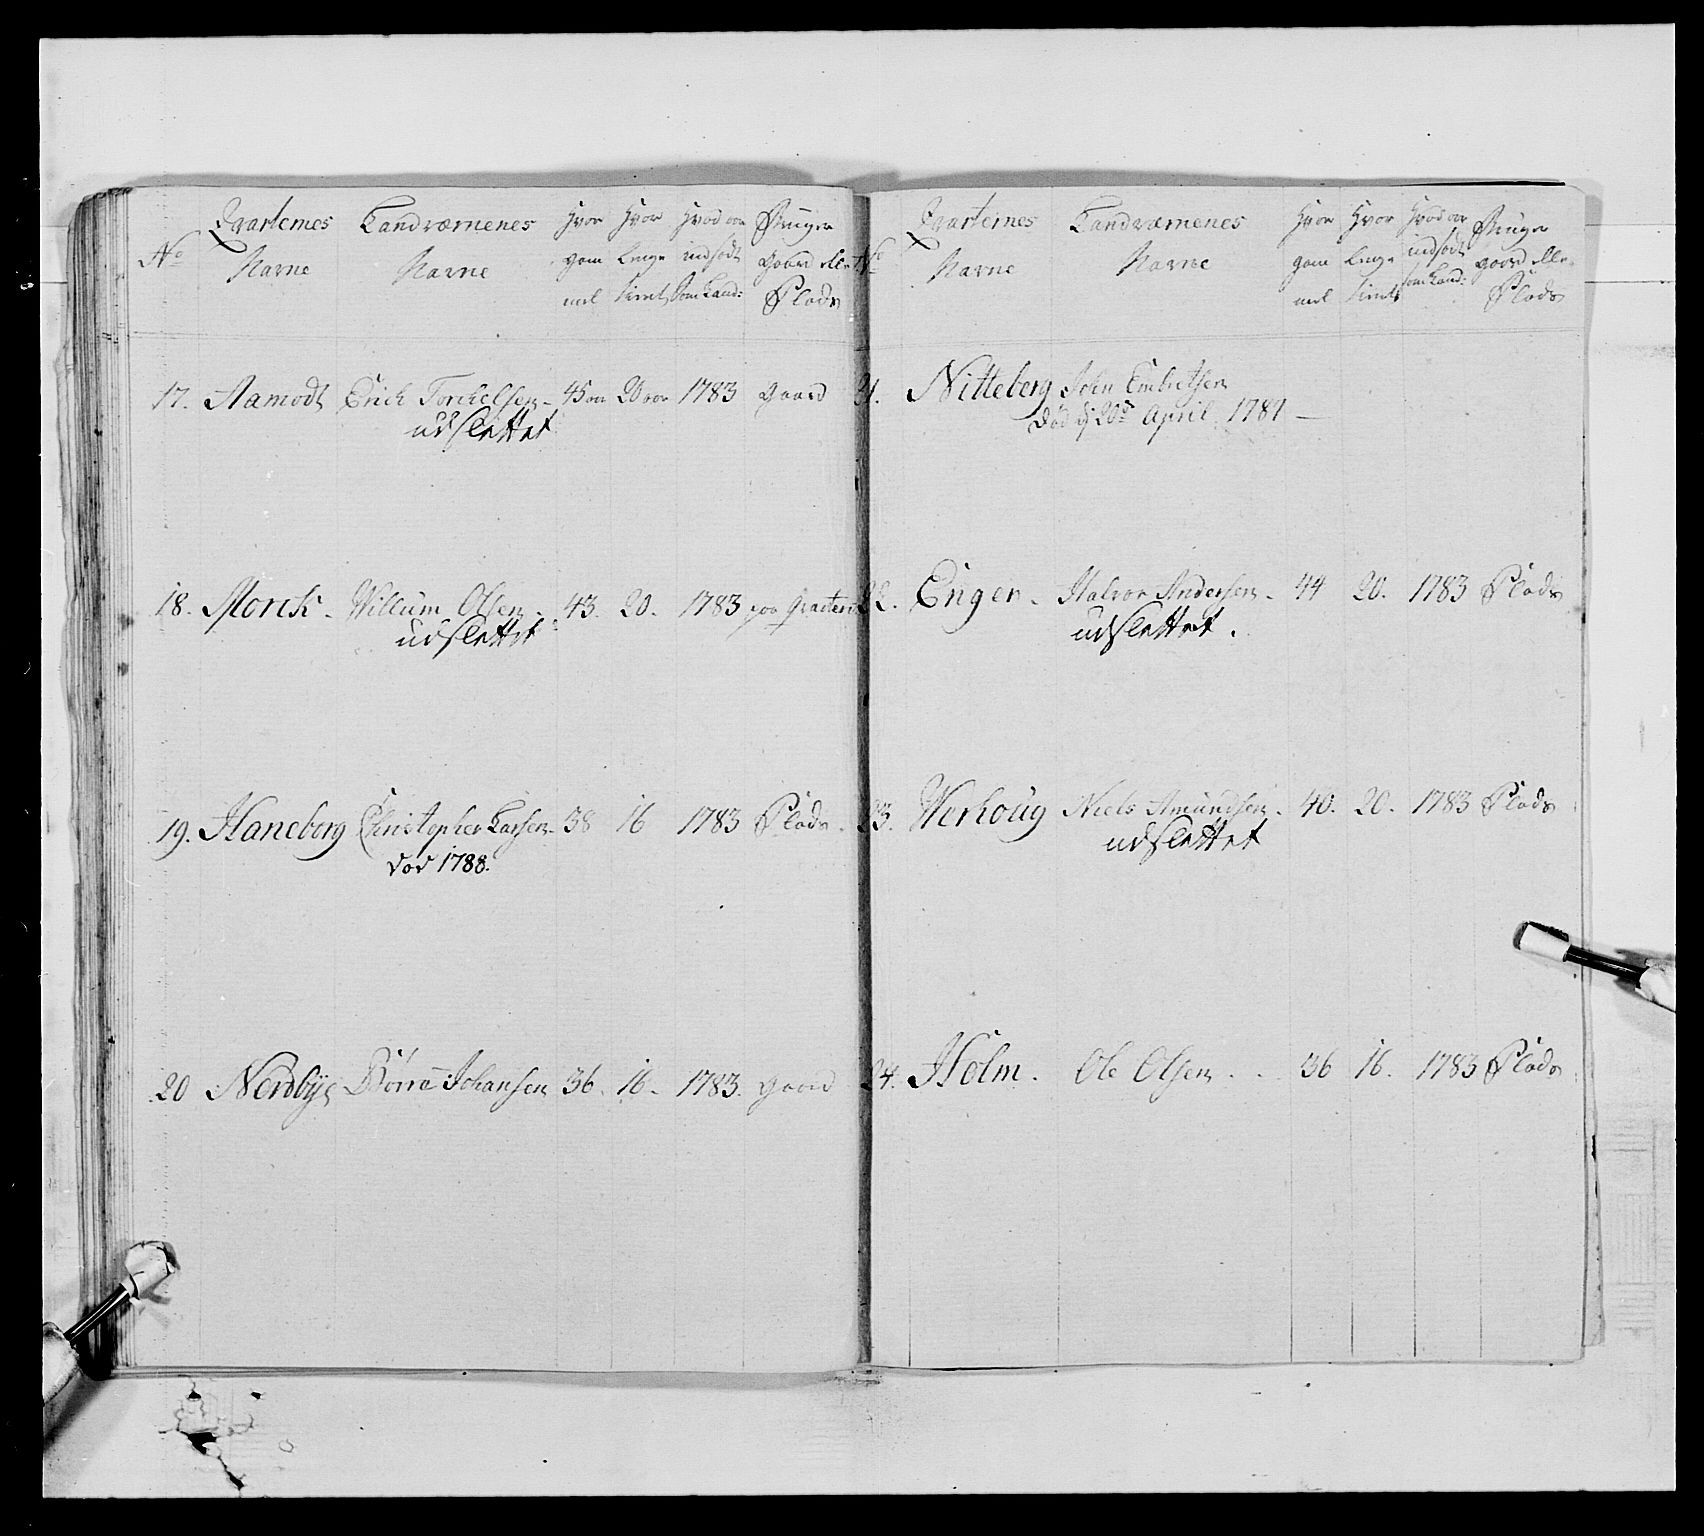 No
Qvarternes Navne
Landværnenes Navne
Hvor gam̄el
Hvor lenge tient
Hvad aar indsødt som Land:
Bruger gaard eller Plads
17. Aamodt Erich Torchelsen - 45 aar 20 aar 1783 gaard
udslettet
18. Morck - Willum Olsen - 43. 20. 1783 paa Qvarteret
udslettet
19. Haneborg Christopher Larsen - 38 16 1783 Plads.
død 1788.
20 Nerdbye Børre Johansen 36. 16. 1783. gaard
No
Qvarternes Navne
Landværnenes Navne
Hvor gam̄el
Hvor lenge tient
Hvad aar indsødt som Land:
Bruger gaard eller Plads
21. Nitteberg John Embretsen
død d 20de April 1787 —
22. Enger - Halvor Andersen - 44 20. 1783 Plads
udslettet.
23. Werhoug Niels Amundsen - 40. 20. 1783 Plads
udslettet
24. Holm. Ole Olsen - - 36 16. 1783 Plads